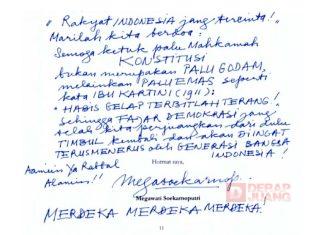 " Rakyat INDONESIA jang tercinta!
Marilah kita berdoa:
Semoga ketuk palu Mahkamah
KONSTITUSI
bukan merupakan PALU GODAM,
melainkan PALU EMAS seperti
kata IBU KARTINI (1911):
" HABIS GELAP TERBITLAH TERANG!
Sehingga FAJAR DEMOKRASI jang
telah kita perjuangkan dari dulu
TIMBUL kembali dan akan DIINGAT
TERUSMENERUS oleh GENERASI BANGSA
INDONESIA!
Aamiin Ya Rabbal
Alamin!!
Hormat saya,
Megawati Soekarnoputri
MERDEKA MERDEKA MERDEKA!
11
DERAP
JUANG